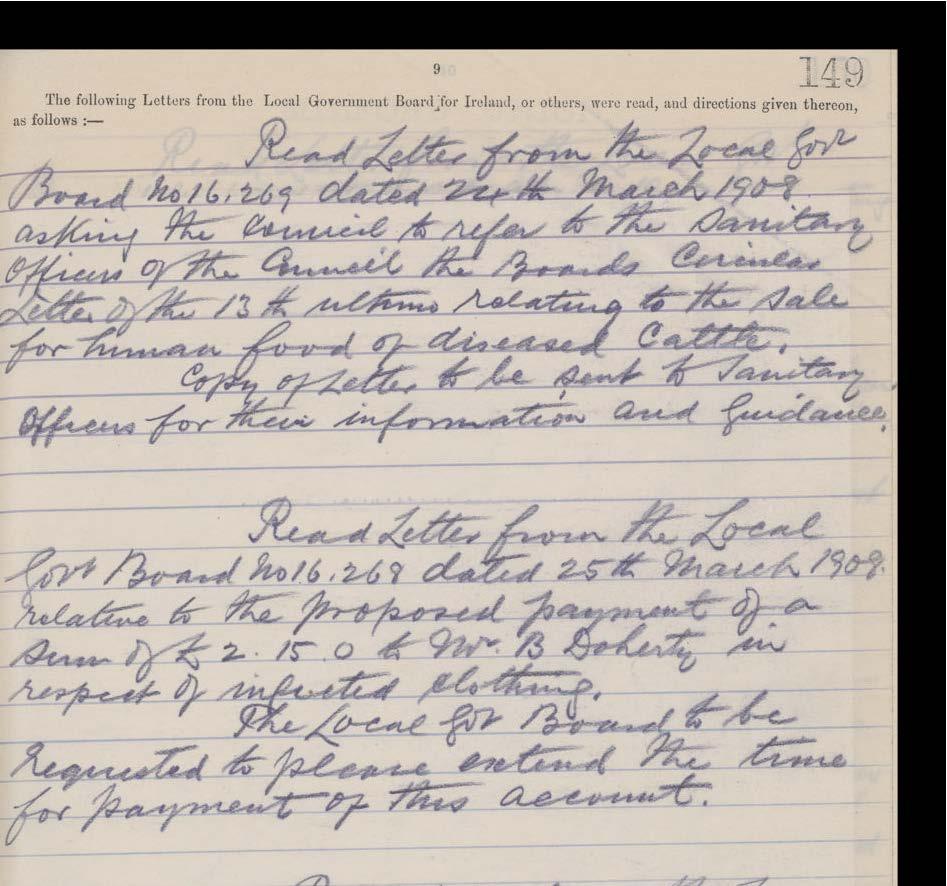 9
149
The following Letters from the Local Government Board for Ireland, or others, were read, and directions given thereon,
as follows :—
Read Letter from the Local Govt
Board No 16.269 dated 24th March 1908
asking the Council to refer to the Sanitary
Officers of the Council the Boards Circular
Letter of the 13th ultimo relating to the sale
for human food of diseased Cattle.
Copy of Letter to be sent to Sanitary
Officers for their information and Guidance.
Read Letter from the Local
Govt Board No 16.268 dated 25th March 1908.
relative to the proposed payment of a
sum of £2.15.0 to Mr. B Doherty in
respect of infected clothing.
The Local Govt Board to be
requested to please extend the time
for payment of this account.